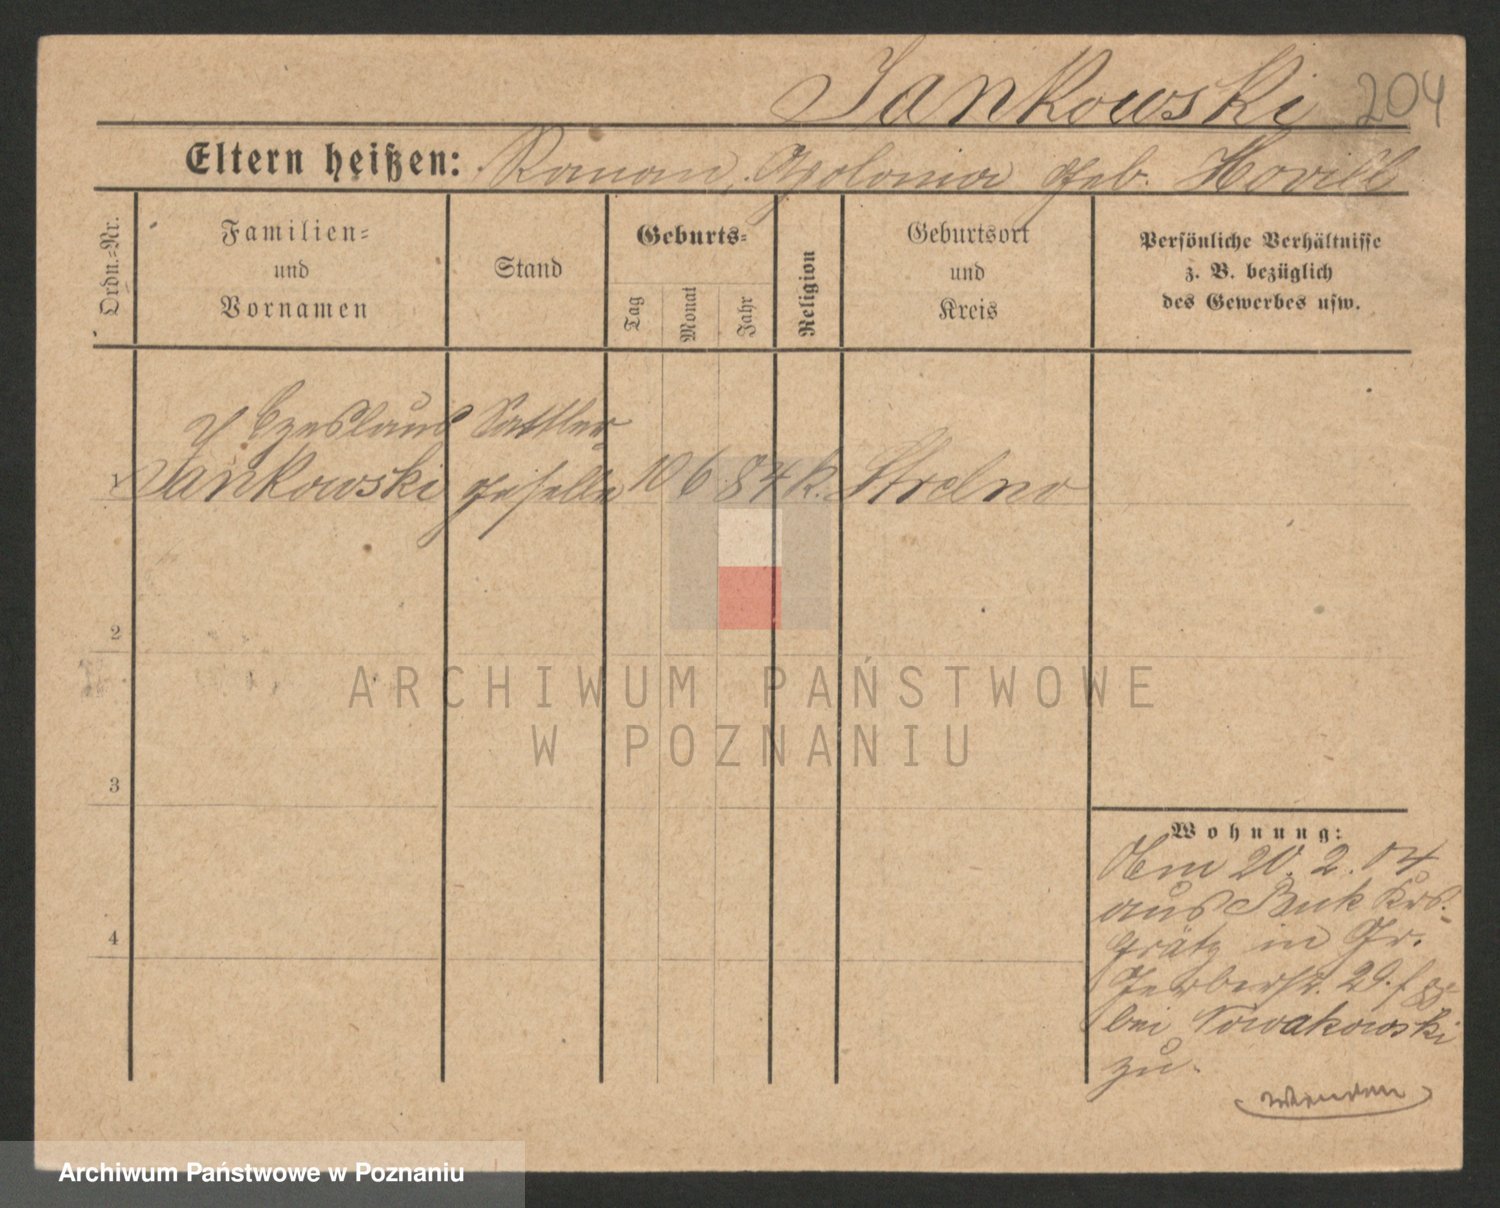 Jankowski 204
Eltern heißen: Roman, Apolonia geb.
Ordn.-Nr.
Familien-
und
Vornamen
Stand
Geburts-
Tag
Monat
Jahr
Religion
Geburtsort
und
Kreis
Persönliche Verhältnisse
z. B. bezüglich
des Gewerbes usw.
Czeslaus Sattler-
1 Jankowski geselle 10 6 84 k. Strelno
2
3
4
ARCHIWUM PAŃSTWOWE
W POZNANIU
Wohnung:
Am 20. 2. 04
aus Buk Krs.
Grätz in Gr.
Gerberstr. 29.
bei Nowakowski
zu.
wenden
Archiwum Państwowe w Poznaniu